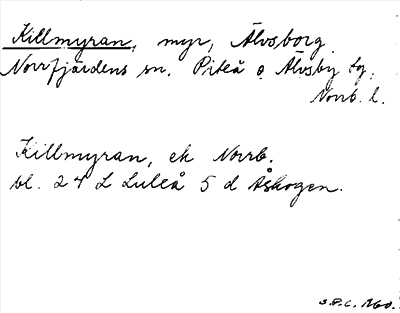 Killmyran, myr, Älvsborg.
Norrfjärdens sn. Piteå o. Älvsby tg.
Norrb. l.
Killmyran, ek Norrb.
bl. 24 L Luleå 5 d Åskogen.
S.P.C. 1960.